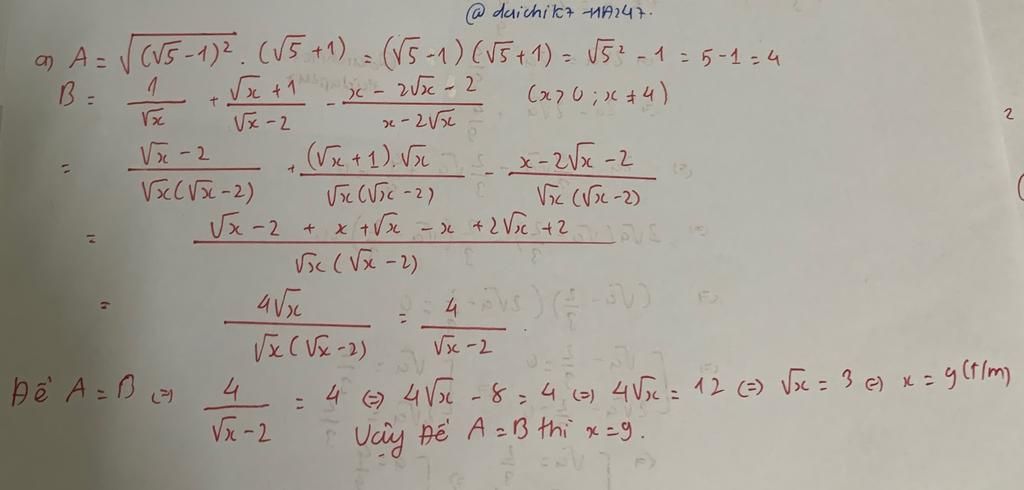 @daichik7-HA247.
a) A = √(√5-1)² . (√5+1) = (√5-1)(√5+1) = √5² - 1 = 5-1 = 4
B = 1/√x + (√x+1)/(√x-2) - (x-2√x-2)/(x-2√x) (x>0; x≠4)
= (√x-2)/(√x(√x-2)) + ((√x+1).√x)/(√x(√x-2)) - (x-2√x-2)/(√x(√x-2))
= (√x-2 + x+√x - x+2√x+2)/(√x(√x-2))
= 4√x/(√x(√x-2)) = 4/(√x-2).
Để A=B (=) 4/(√x-2) = 4 (=) 4√x - 8 = 4 (=) 4√x = 12 (=) √x = 3 (=) x = 9 (t/m)
Vậy Để A=B thì x=9.